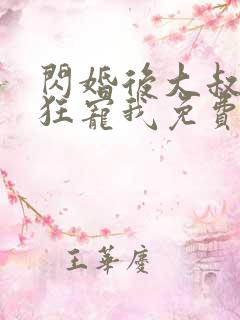 閃婚後大叔
狂寵我免費
王華慶